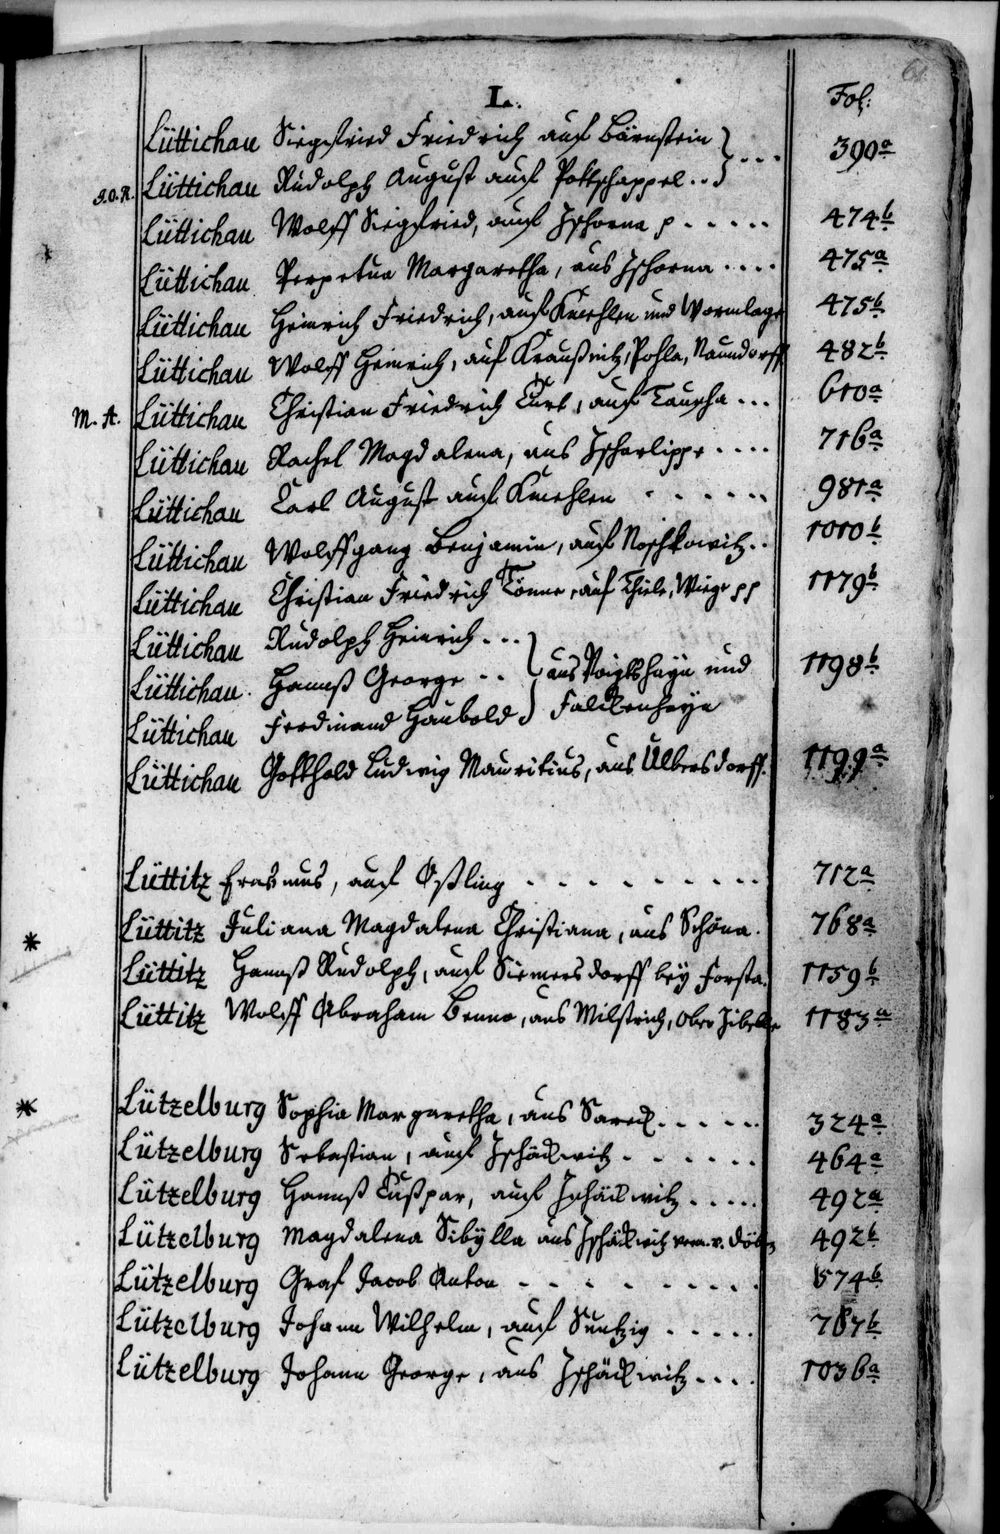 61
L.
Fol:
Lüttichau Siegfried Friedrich auf Bärnstein } ... 390a
S.O.R. Lüttichau Rudolph August auf Pottschappel ..
Lüttichau Wolff Siegfried, auf Zschorna p ..... 474b
Lüttichau Perpetua Margaretha, aus Zschorna .... 475a
Lüttichau Heinrich Friedrich, auf Kmehlen und Wormlage 475b
Lüttichau Wolff Heinrich, auf Kraußnitz, Pohla, Naundorff 482b
M. A. Lüttichau Christian Friedrich Curt, auf Taucha ... 610a
Lüttichau Rachel Magdalena, aus Zscharlippe .... 716a
Lüttichau Carl August auf Kmehlen ...... 981a
Lüttichau Wolffgang Benjamin, auf Noschkowitz .. 1010b
Lüttichau Christian Friedrich Tönne, auf Thiele, Wiege pp 1179b
Lüttichau Rudolph Heinrich ...
Lüttichau Hannß George .. } aus Voigtshayn und 1198b
Lüttichau Ferdinand Haubold Falckenhayn
Lüttichau Gotthold Ludwig Mauritius, aus Ulbersdorff. 1199a
Lüttitz Erasmus, auf Oßling ......... 712a
* Lüttitz Juliana Magdalena Christiana, aus Schöna. 768a
Lüttitz Hannß Rudolph, auf Siemersdorff bey Forsta. 1159b
Lüttitz Wolff Abraham Benno, aus Milstrich, Ober Zibelle 1183a
* Lützelburg Sophia Margaretha, aus Sareck ..... 324a
Lützelburg Sebastian, auf Zschäckwitz ...... 464a
Lützelburg Hannß Caßpar, auf Zschäckwitz ..... 492a
Lützelburg Magdalena Sibylla aus Zschäckwitz verm. v. 492b
Lützelburg Graf Jacob Anton ........ 574b
Lützelburg Johann Wilhelm, auf ..... 787b
Lützelburg Johann George, aus Zschäckwitz .... 1036a